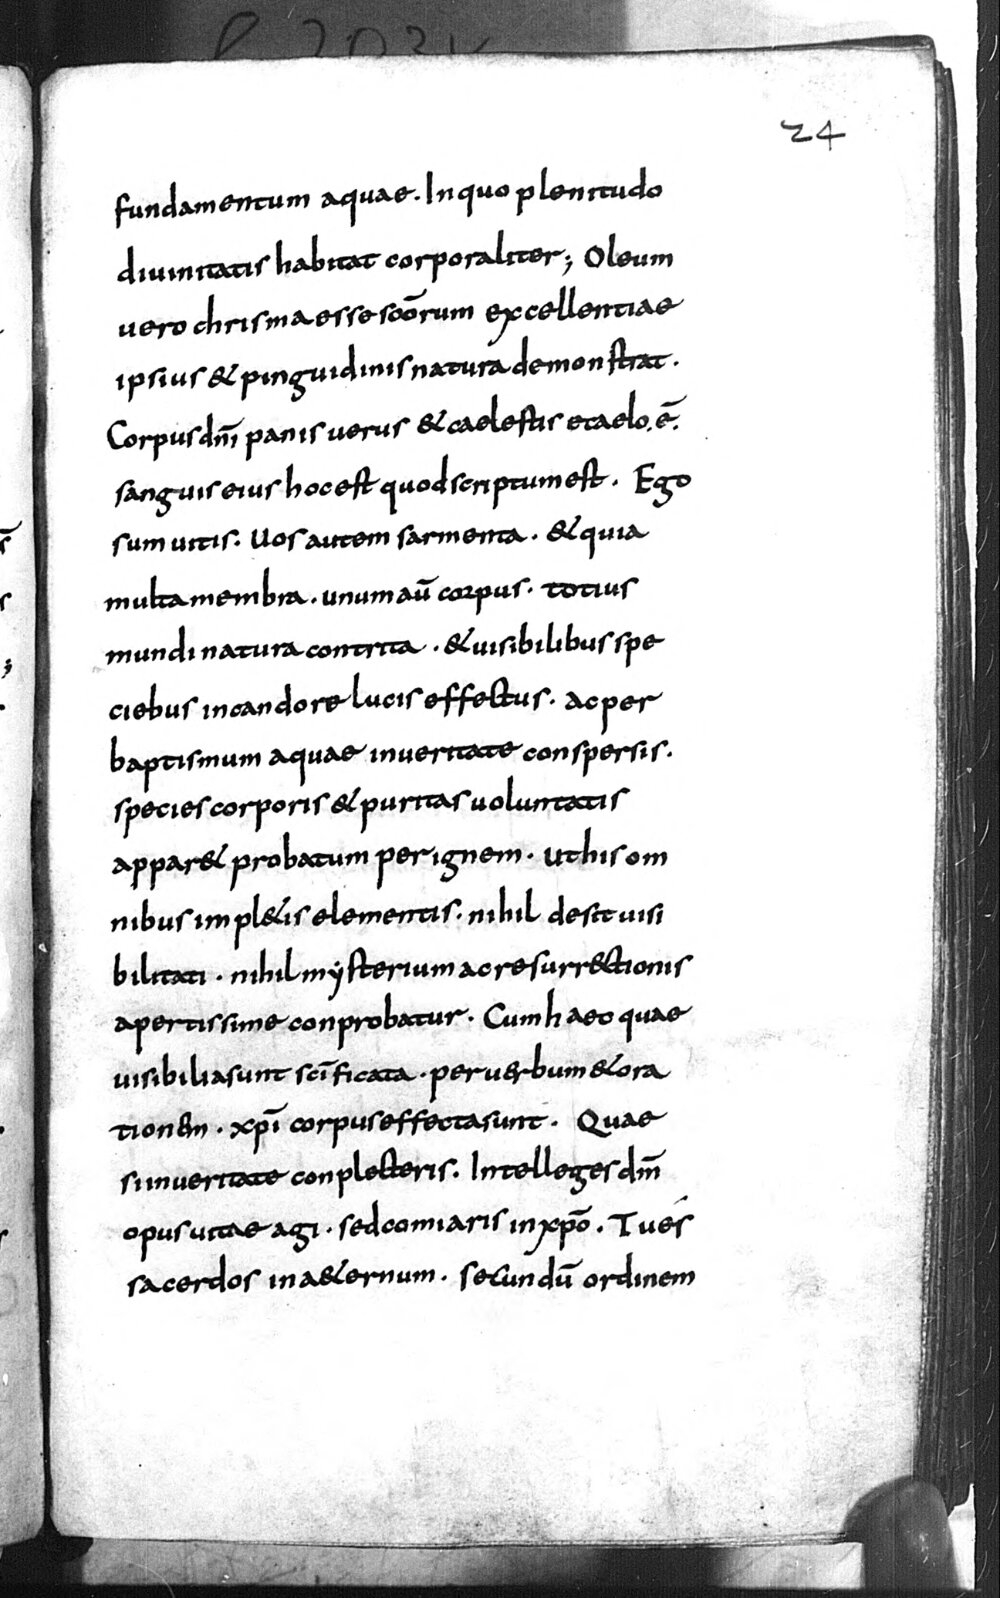 24
fundamentum aquae. In quo plenitudo
diuinitatis habitat corporaliter; Oleum
uero chrisma esse scōrum excellentiae
ipsius & pinguidinis natura demonstrat.
Corpus dn̄i panis uerus & caelestis etaelo. ē.
sanguis eius hoc est quod scriptum est. Ego
sum uitis. Uos autem sarmenta. & quia
multa membra. unum aū corpus. totius
mundi natura contrita. & uisibilibus spe
ciebus in candore lucis effectus. ac per
baptismum aquae in ueritate conspersis.
species corporis & puritas uoluntatis
appar& probatum per ignem. Ut his om
nibus impl&is elementis. nihil desit uisi
bilitati. nihil mẏsterium ac resurr&ctionis
apertissime conprobatur. Cum haec quae
uisibilia sunt sc̄ificata. per uerbum & ora
tionem. xp̄i corpus effecta sunt. Quae
si in ueritate conplecteris. Intelleges dn̄i
opus uitae agi. sed comiaris in xp̄o. Tu es
sacerdos in a&ernum. secundū ordinem